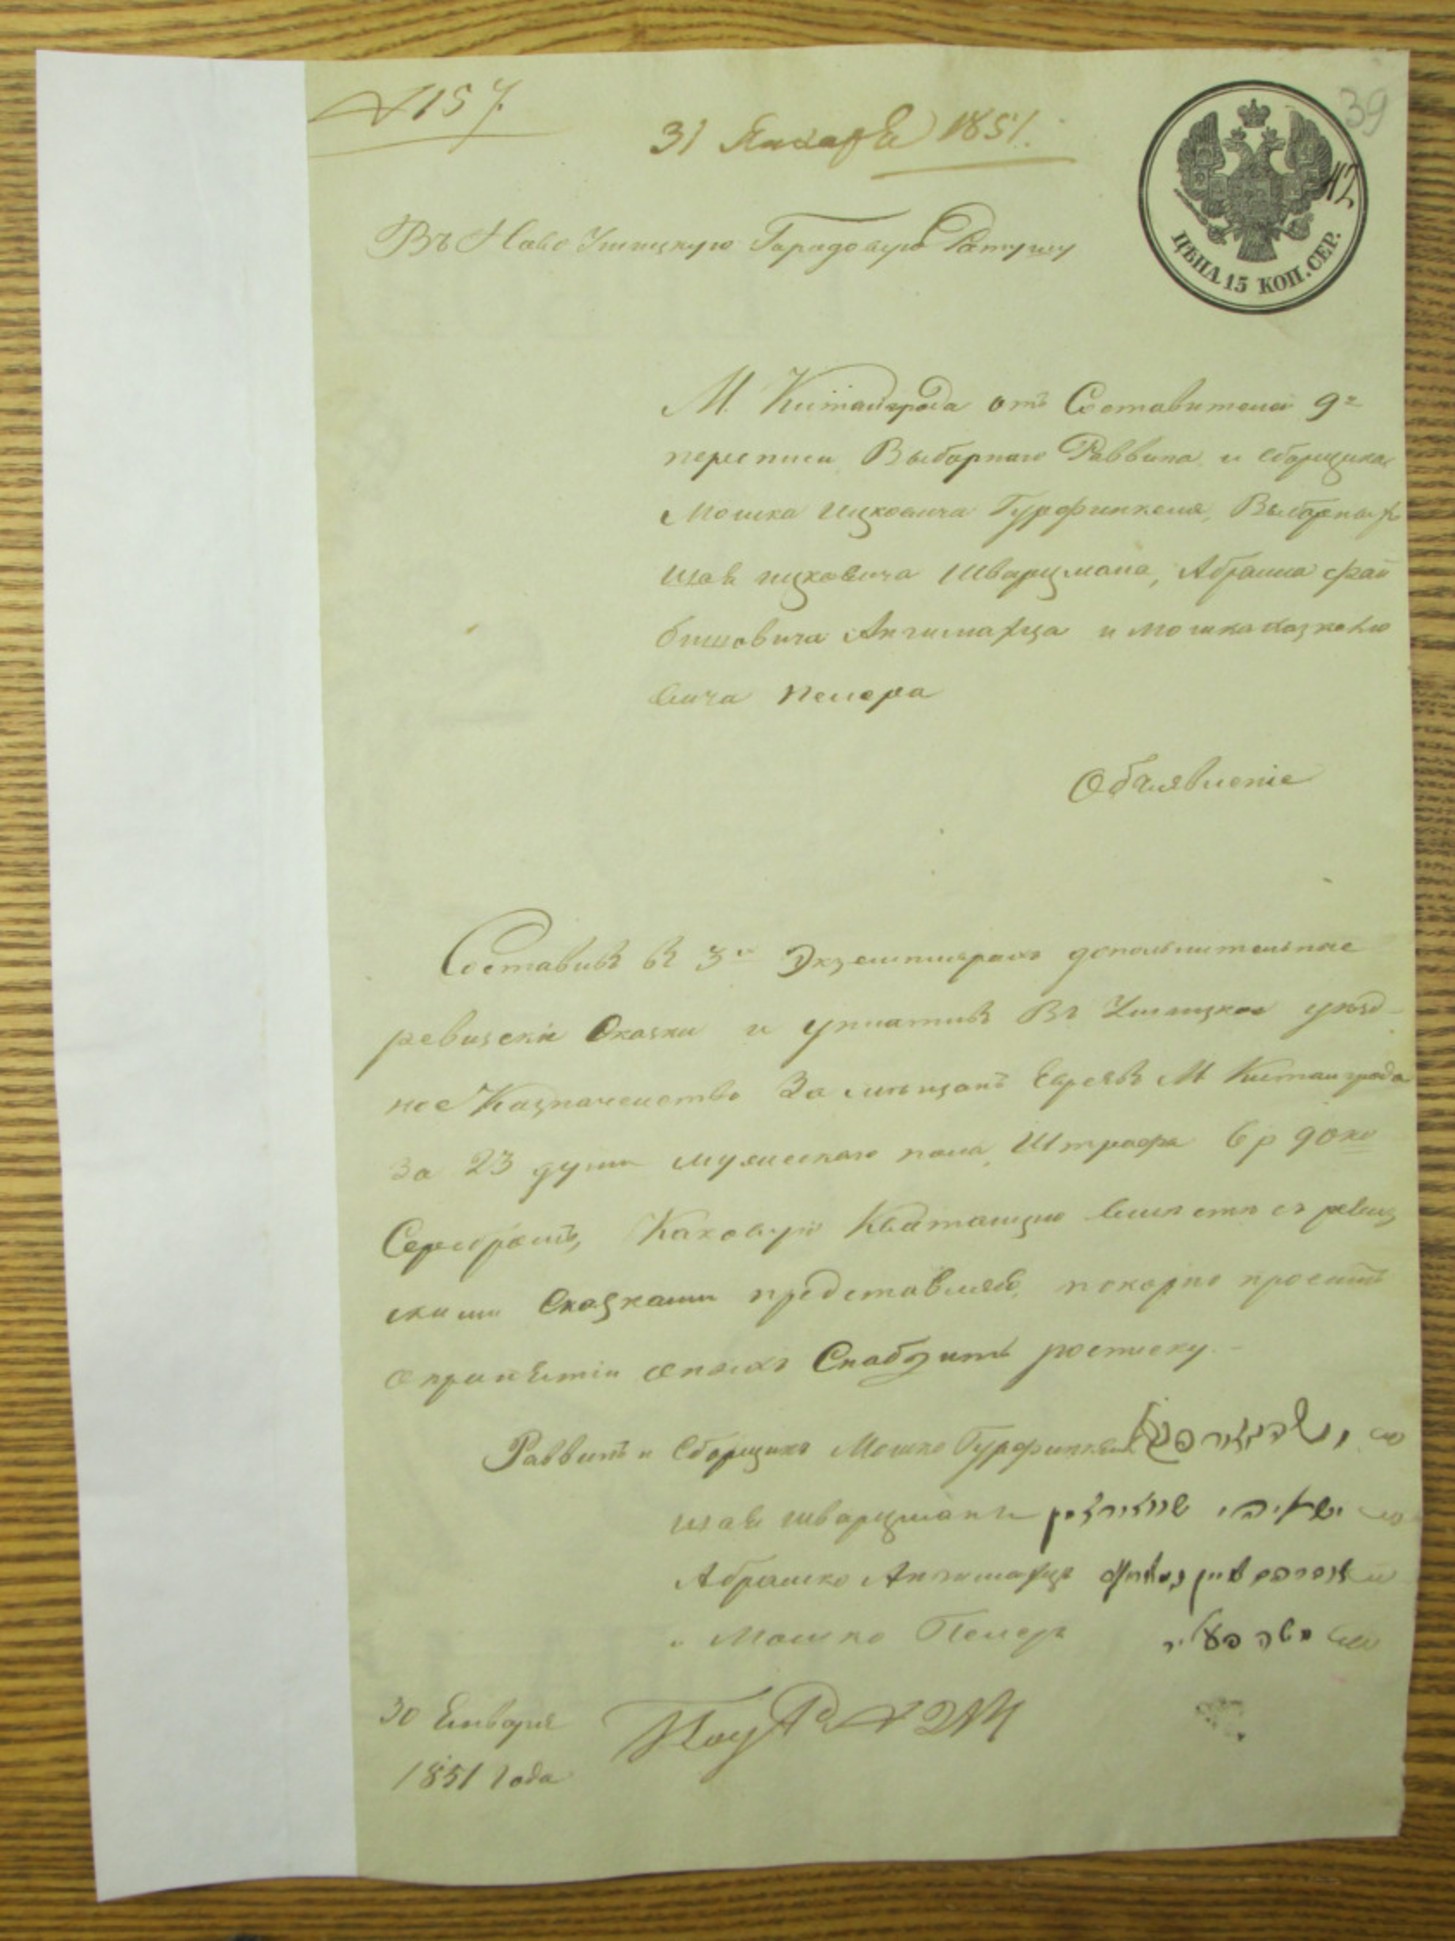 N 157.
39
31 Января 1851.
42
ЦѢНА 15 КОП. СЕР.
Въ Ново Ушицкую Городовую Ратушу
М. Китайгрода отъ Составителей 9й
переписи Выборнаго Раввина и сборщика
Мошка Ицковича Гурфинкеля, Выборных
Шаи Ицковича Шварцмана, Абрама Фай
бишовича и Мошка
вича Пелера
Объявленіе
Составивъ въ 3х Экземплярахъ дополнительные
ревизскіе Сказки и уплативъ Въ Ушицкое уѣзд-
ное Казначейство За мѣщанъ Евреевъ М Китайгрода
За 23 души мужескаго пола, Штрафа 6 р 90 ко
Серебромъ, Каковую Квитанцію вмѣстѣ съ ревиз
скими Сказками представляя, покорно просимъ
о принятіи оныхъ Снабдить росписку.
Раввинъ и Сборщикъ Мошко Гурфинкель
Шая Шварцманъ ישעיהו שווארצמן
Абрашко אברהם
и Мошко Пелер משה פעליר
30 Енваря
1851 Года